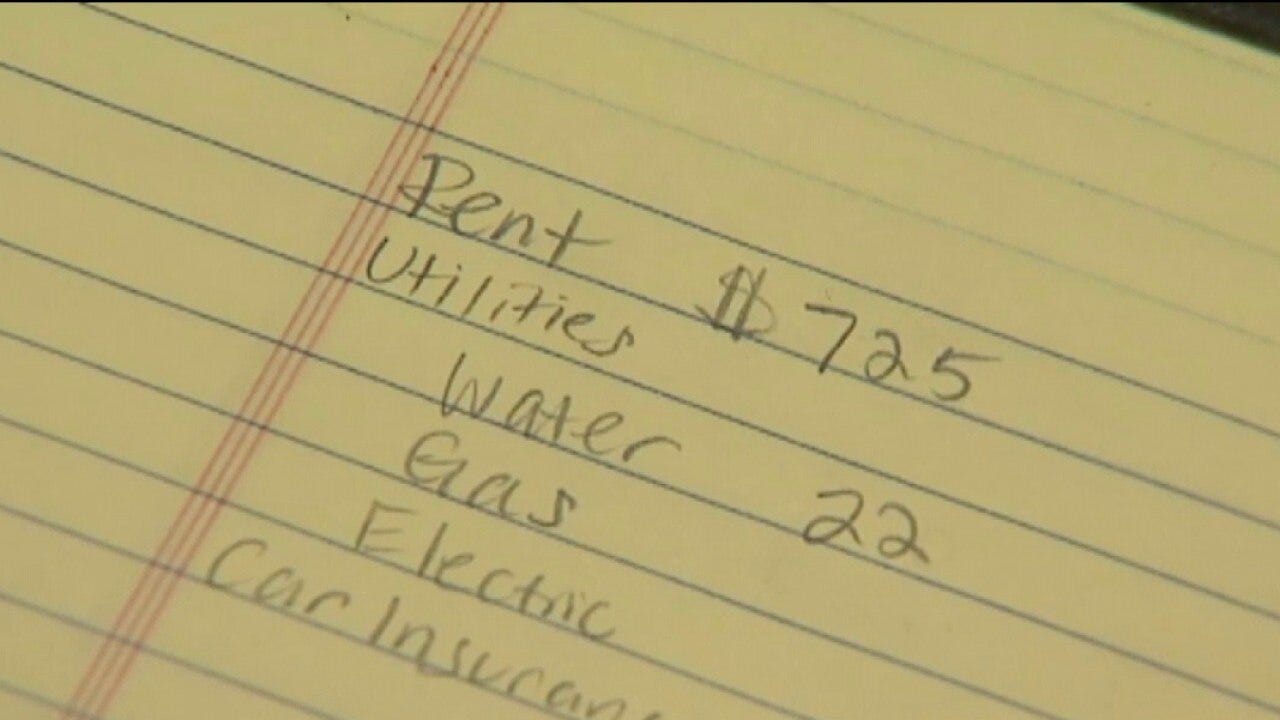 Rent $ 725
Utilities
Water 22
Gas
Electric
Car Insuran